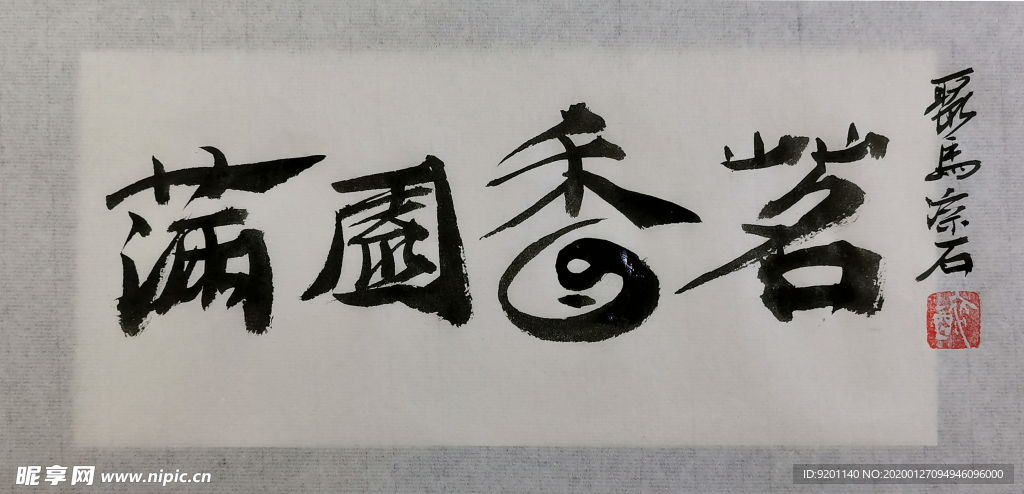 满園香茗
聚馬宗石
昵享网 www.nipic.cn
ID:9201140 NO:20200127094946096000